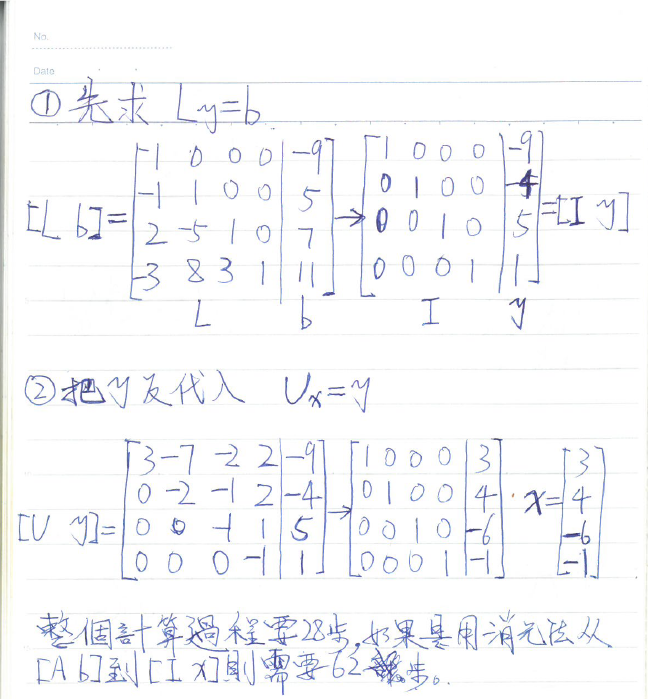 No.
Date
① 先求 Ly=b
[L b]=[-1 0 0 0 | -9; -1 1 0 0 | 5; 2 -5 1 0 | 7; -3 8 3 1 | 11]→[1 0 0 0 | -9; 0 1 0 0 | -4; 0 0 1 0 | 5; 0 0 0 1 | 1]=[I y]
L b I y
② 把y反代入 Ux=y
[U y]=[3 -7 -2 2 | -9; 0 -2 -1 2 | -4; 0 0 -1 1 | 5; 0 0 0 -1 | 1]→[1 0 0 0 | 3; 0 1 0 0 | 4; 0 0 1 0 | -6; 0 0 0 1 | -1]. x=[3; 4; -6; -1]
整個計算過程要28步,如果是用消元法从
[A b]到[I x]則需要62步。